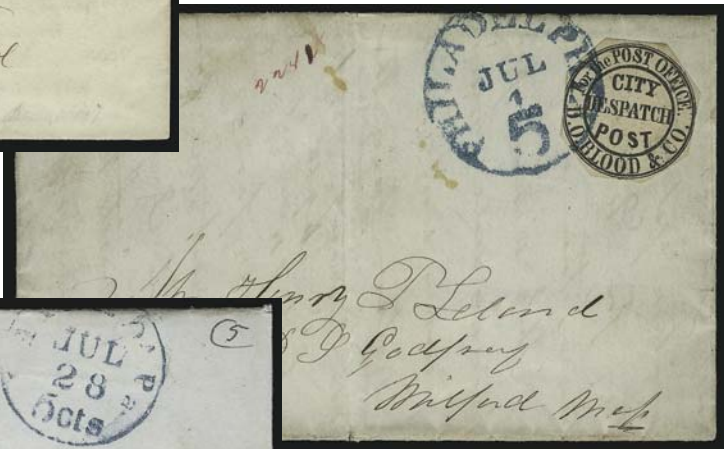 2241
PHILADELPH
JUL
1
5
For the POST OFFICE.
CITY
DESPATCH
POST
D.O. BLOOD & CO.
Mr. Henry P Leland
S D Godfrey
Milford Mass
5
JUL
28
5cts
Pa